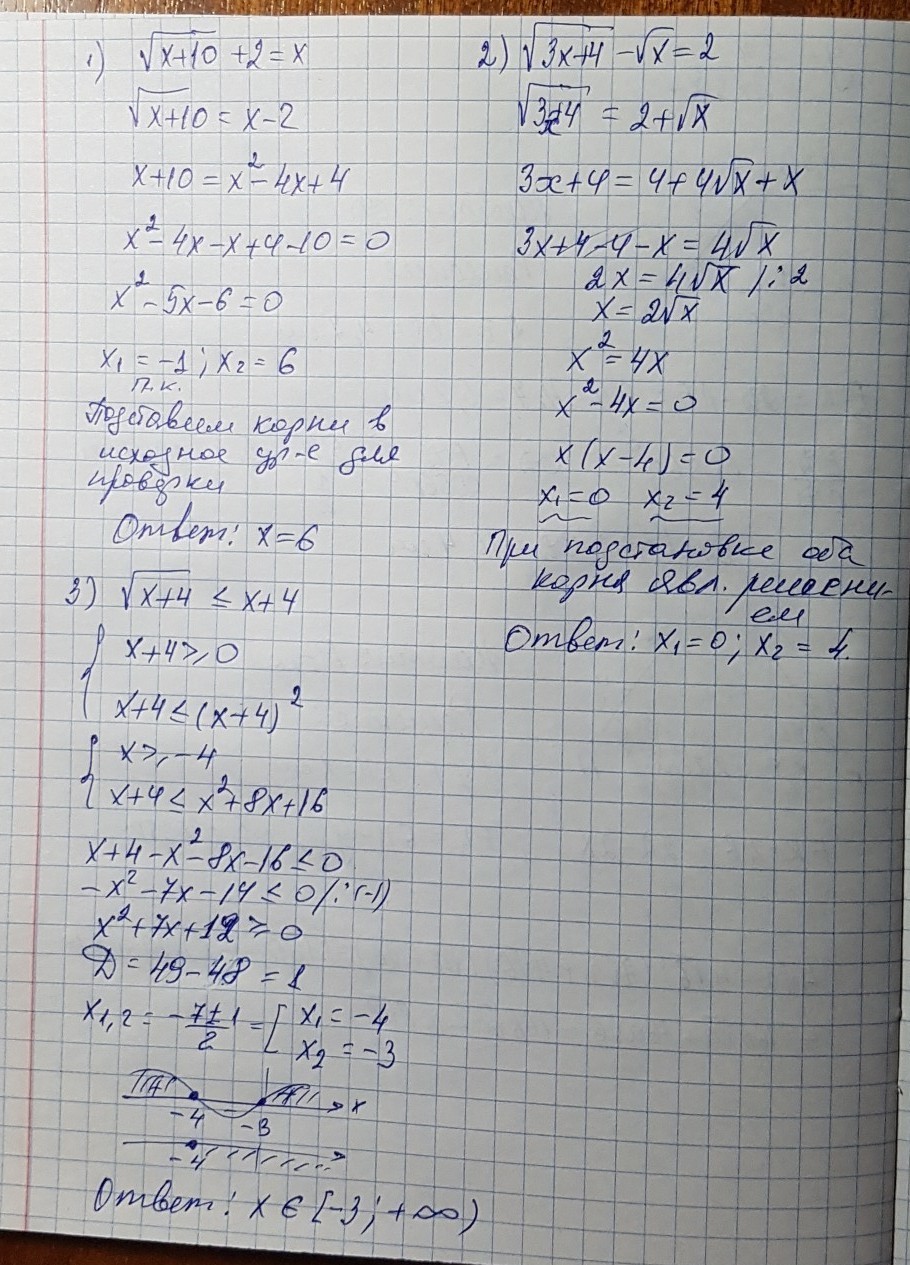 1) √(x+10) + 2 = x
√(x+10) = x-2
x+10 = x² - 4x+4
x² - 4x - x + 4 - 10 = 0
x² - 5x - 6 = 0
x₁ = -1 ; x₂ = 6
п.к.
Подставим корни в
исходное ур-е для
проверки
Ответ: x=6
2) √(3x+4) - √x = 2
√(3x+4) = 2+√x
3x+4 = 4+4√x + x
3x+4-4-x = 4√x
2x = 4√x /:2
x = 2√x
x² = 4x
x² - 4x = 0
x(x-4) = 0
x₁=0 x₂=4
При подстановке оба
корня явл. решени-
ем
Ответ: x₁=0; x₂ = 4.
3) √(x+4) ≤ x+4
{ x+4 ≥ 0
x+4 ≤ (x+4)²
{ x ≥ -4
x+4 ≤ x²+8x+16
x+4-x²-8x-16 ≤ 0
-x²-7x-14 ≤ 0 /:(-1)
x²+7x+12 ≥ 0
D = 49-48 = 1
x₁,₂ = -7±1/2 = [ x₁ = -4
x₂ = -3
x
-4 -3
-4
Ответ: x ∈ [-3; +∞)